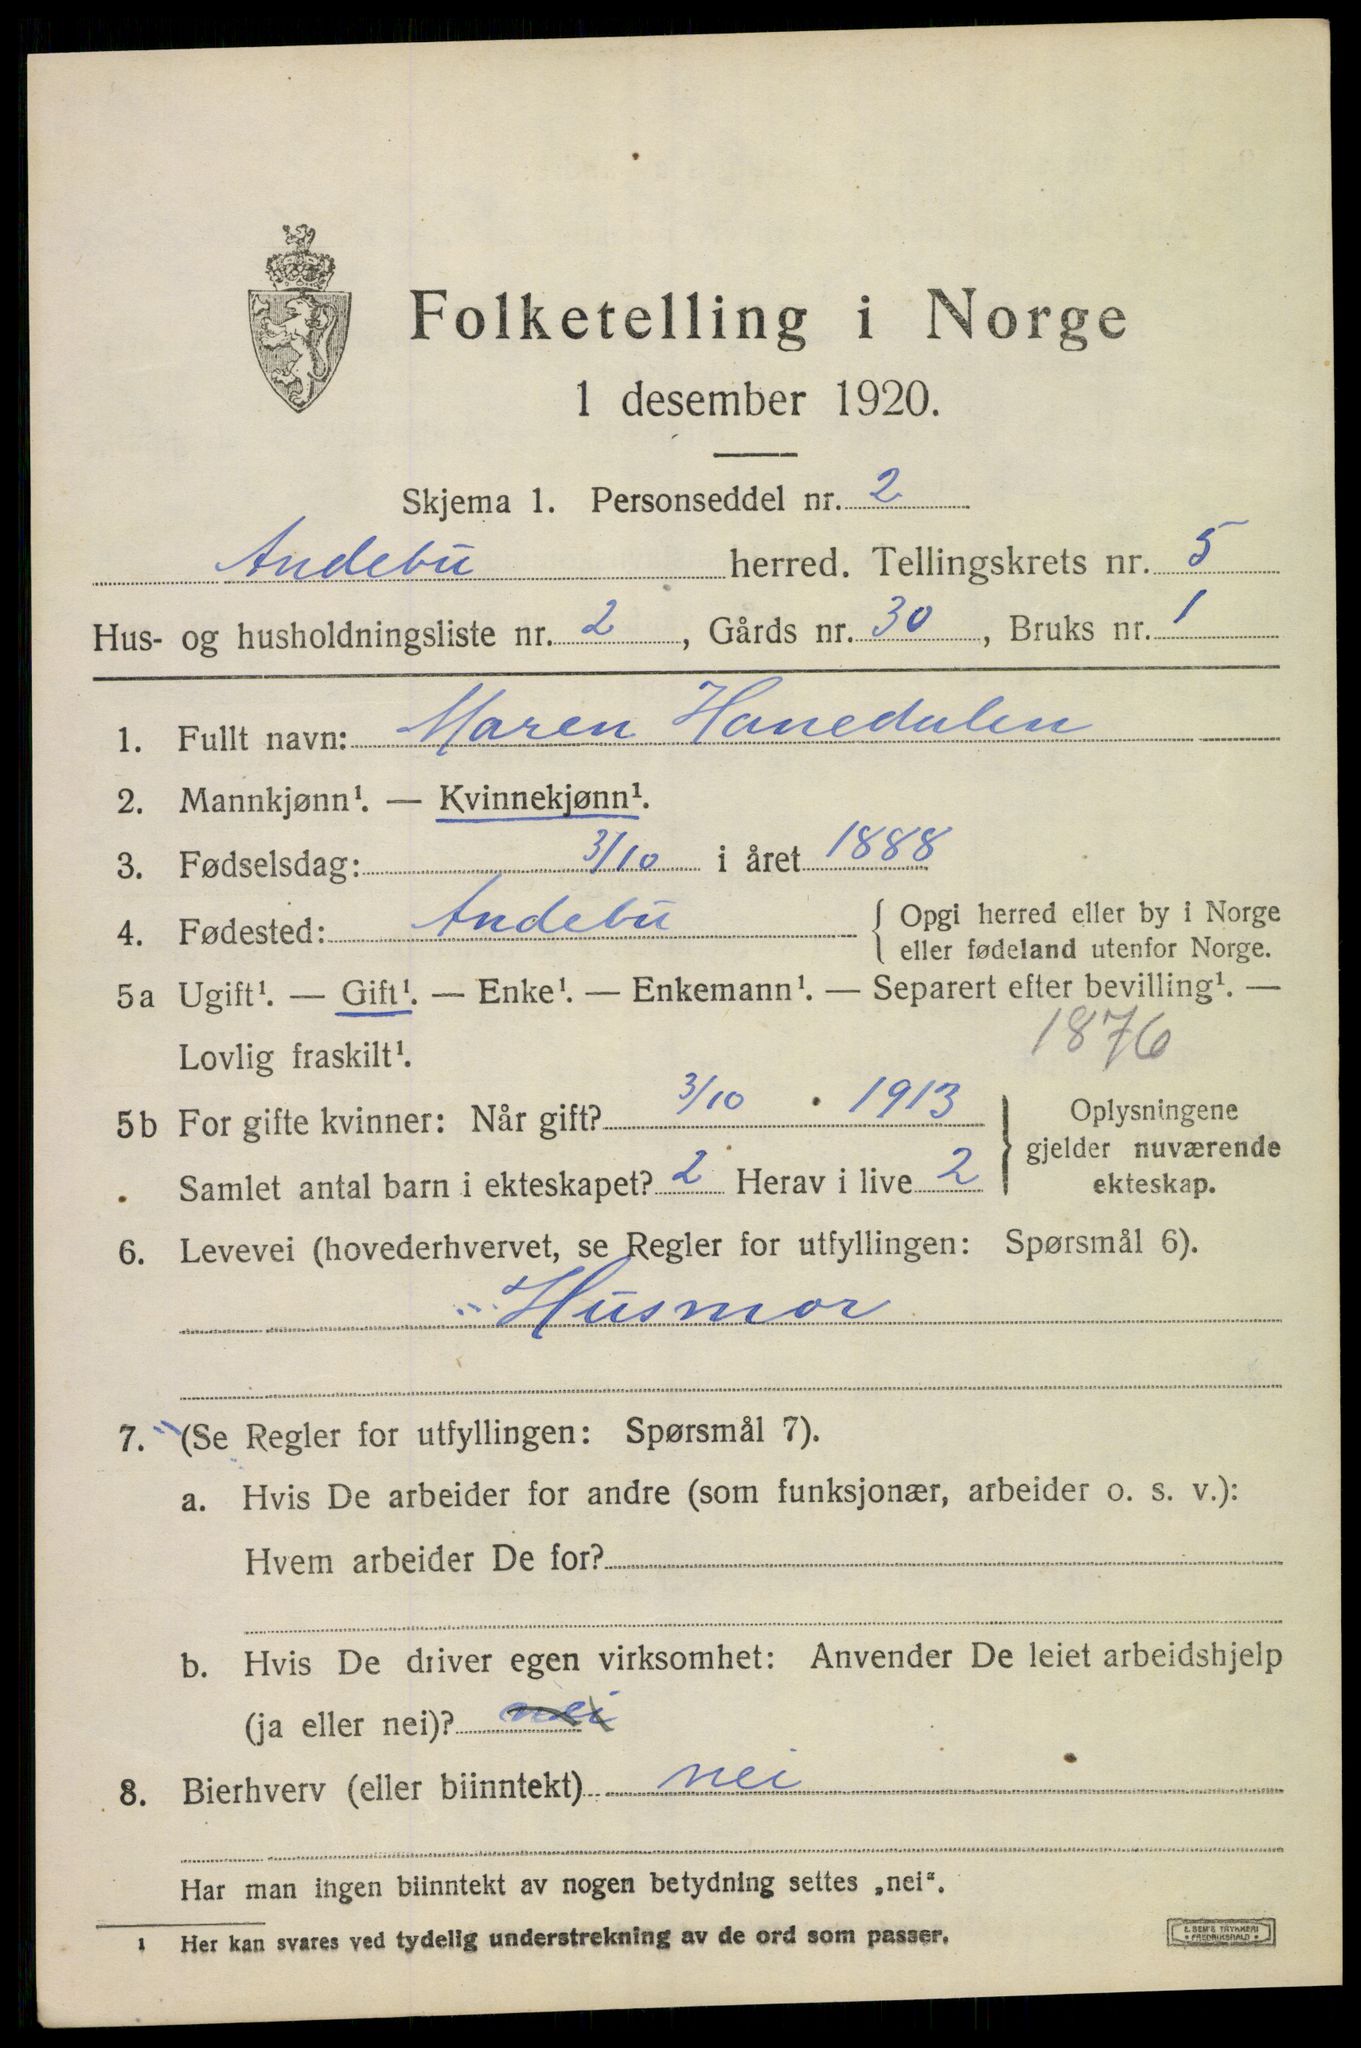 Folketelling i Norge
1 desember 1920.
Skjema 1. Personseddel nr. 2
Andebu herred. Tellingskrets nr. 5
Hus- og husholdningsliste nr. 2, Gårds nr. 30, Bruks nr. 1
1. Fullt navn: Maren Hanedalen
2. Mannkjønn¹. — Kvinnekjønn¹.
3. Fødselsdag: 3/10 i året 1888
4. Fødested: Andebu { Opgi herred eller by i Norge
eller fødeland utenfor Norge.
5a Ugift¹. — Gift¹. — Enke¹. — Enkemann¹. — Separert efter bevilling¹. —
Lovlig fraskilt¹. 1876
5b For gifte kvinner: Når gift? 3/10 1913 } Oplysningene
gjelder nuværende
Samlet antal barn i ekteskapet? 2 Herav i live 2 ekteskap.
6. Levevei (hovederhvervet, se Regler for utfyllingen: Spørsmål 6).
Husmor
7. (Se Regler for utfyllingen: Spørsmål 7).
a. Hvis De arbeider for andre (som funksjonær, arbeider o. s. v.):
Hvem arbeider De for?
b. Hvis De driver egen virksomhet: Anvender De leiet arbeidshjelp
(ja eller nei)? nei
8. Bierhverv (eller biinntekt) nei
Har man ingen biinntekt av nogen betydning settes „nei".
1 Her kan svares ved tydelig understrekning av de ord som passer.
E. SEM'S TRYKKERI
FREDRIKSHALD